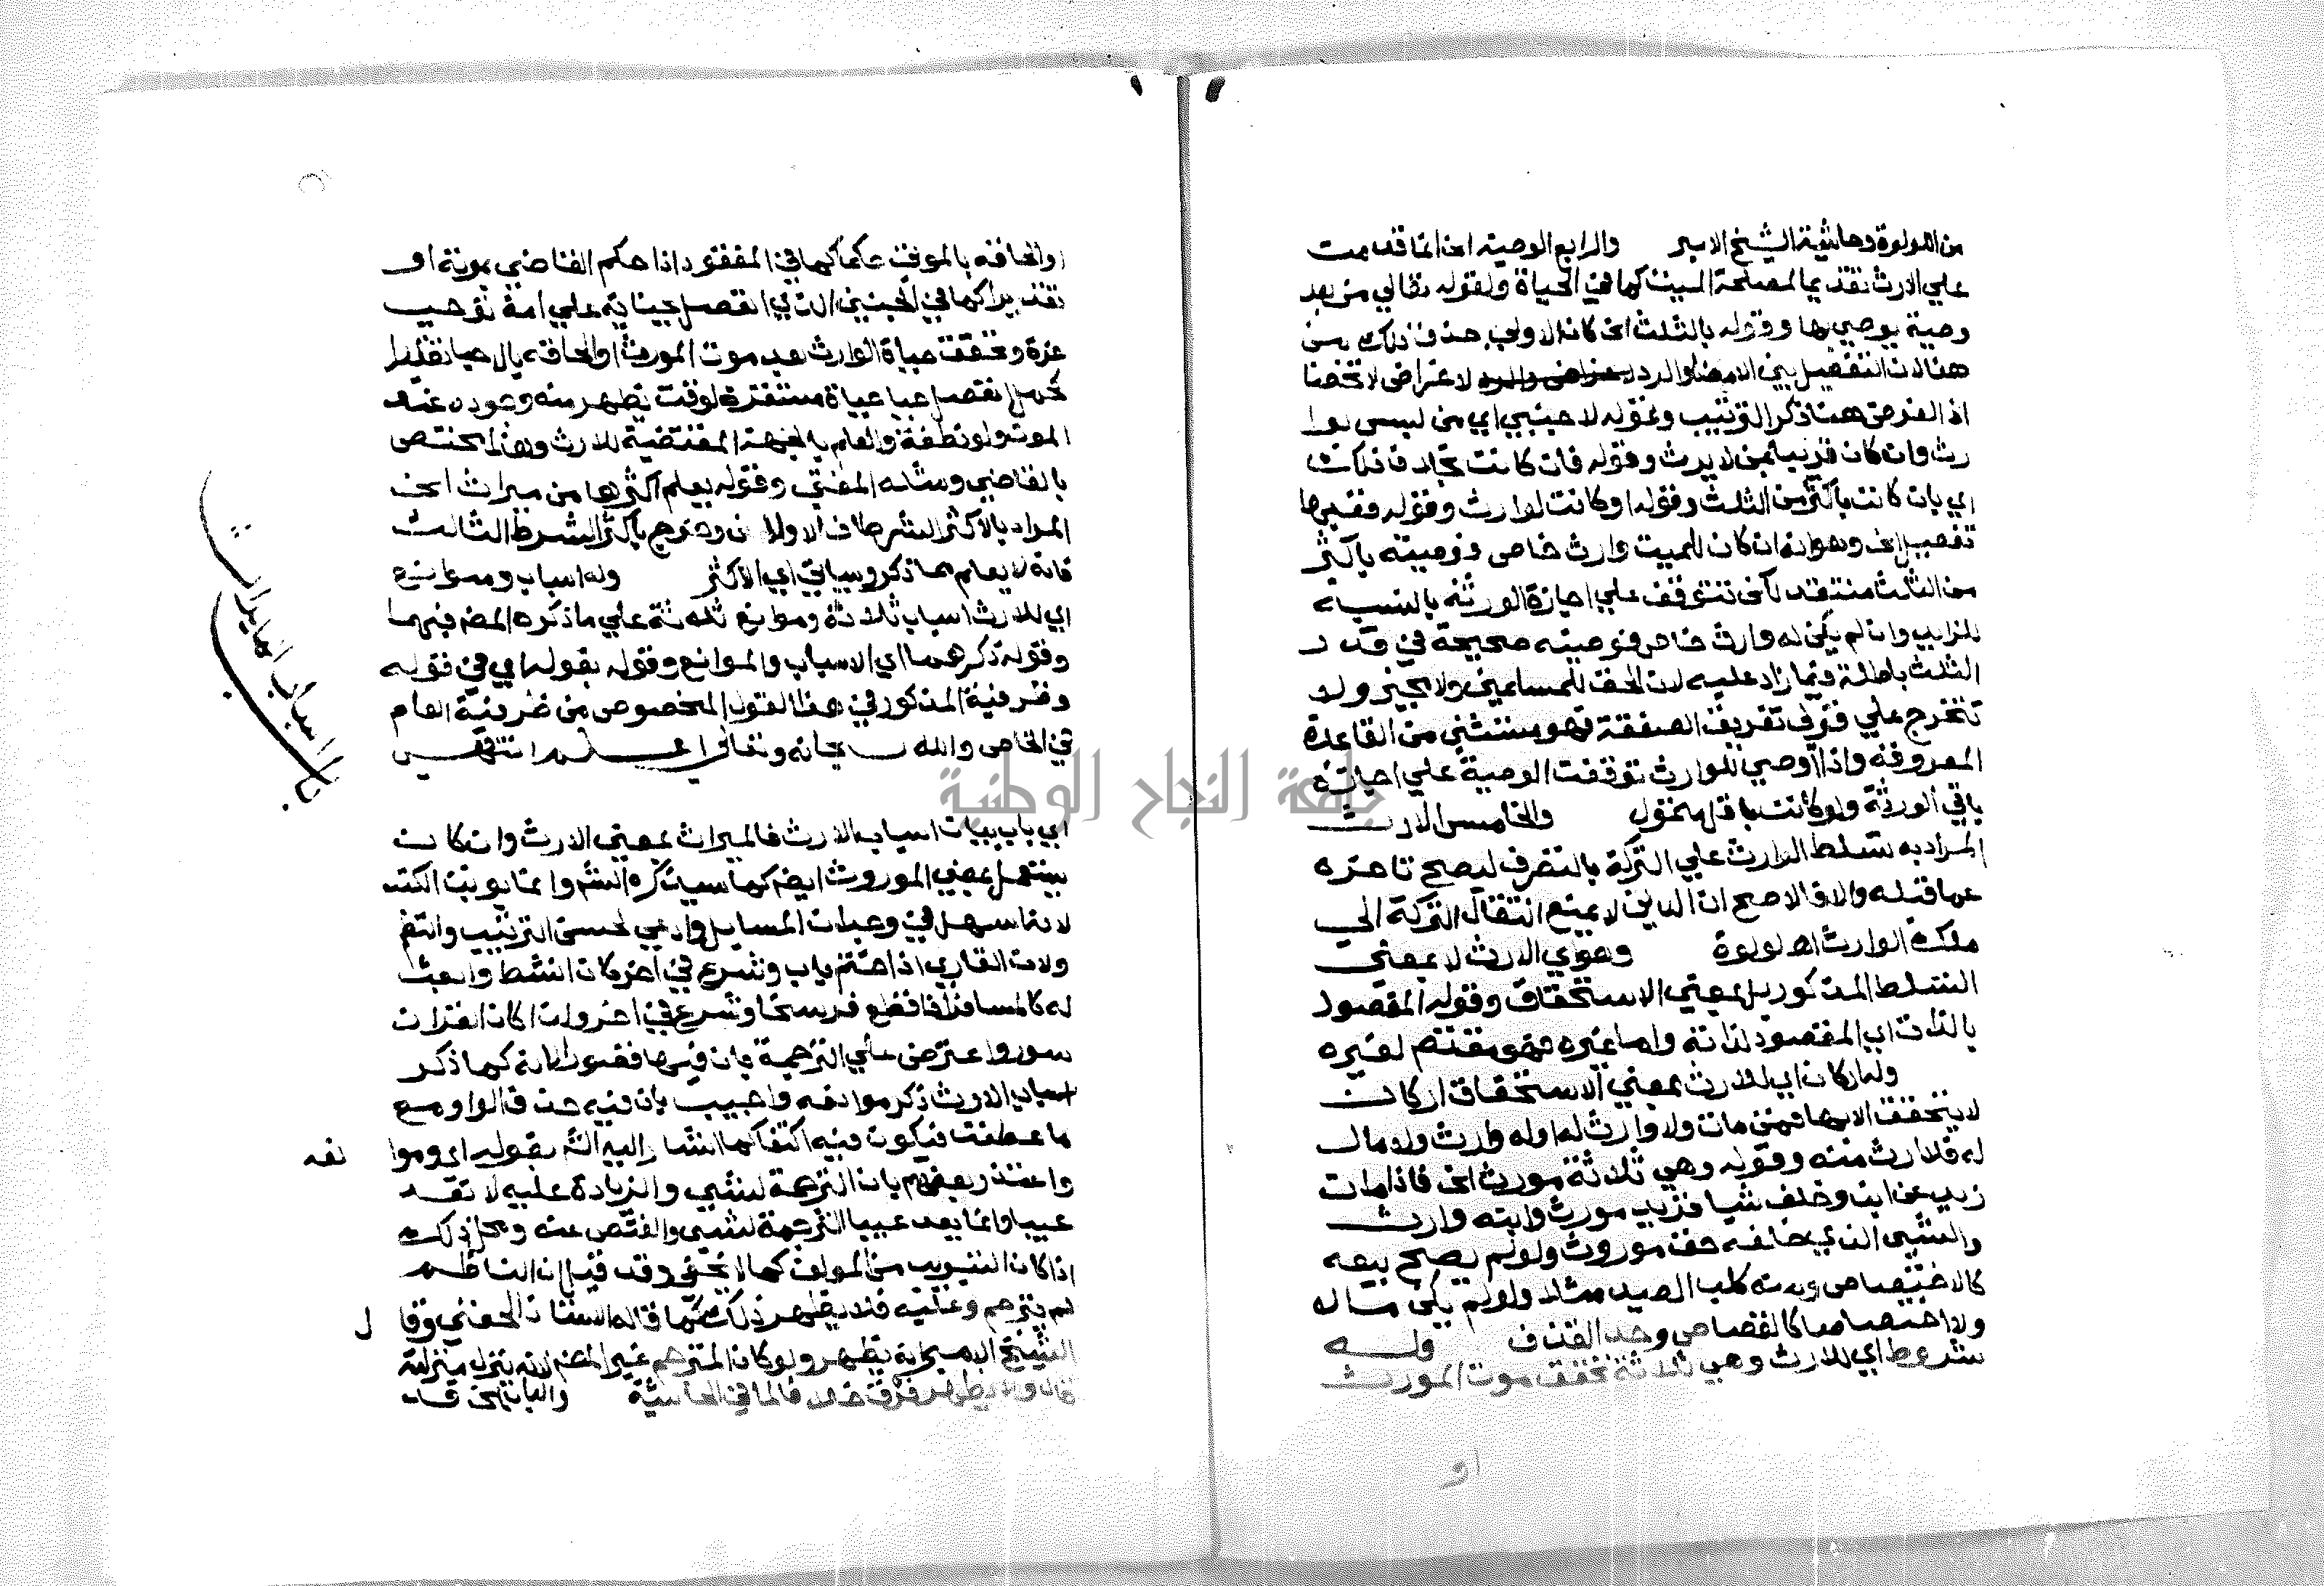 من اللولوة وحاشية الشيخ الامير والرابع الوصية الخ انما قدمت
علي الارث تقديما لمصلحة الميت كما في الحياة ولقوله تعالي من بعد
وصية يوصي بها وقوله بالثلث الخ كان الاولي حذف ذلك من
هنا لان التفصيل بين الامضا والرد لاغراض لا تخصنا
اذ الغرض هنا ذكر الترتيب وقوله لاجنبي اي من ليس بوا
رث وان كان قريبا لا يرث وقوله فان كانت بخلاف ذلك
اي بان كانت باكثر من الثلث وقوله او كانت لوارث وقوله ففيها
تفصيل الخ وهو انه ان كان للميت وارث خاص فوصيته باكثر
من الثلث منتقد لكن تتوقف علي اجازة الورثة بالنسبة
للزايد وان لم يكن له وارث خاص فوصيته صحيحة في قدر
الثلث باطلة فيما زاد عليه لان الحق للمسلمين ولا مجيز ولم
تتخرج علي فرق تفريق الصفقة فهو مستثني من القاعدة
المعروفة واذا اوصي للوارث توقفت الوصية علي اجازة
باقي الورثة ولو كانت باقل متمول والخامس الارث
المراد به تسلط الوارث علي التركة بالتصرف ليصح تاخره
عما قبله والا فالاصح ان الدين لا يمنع انتقال التركة الي
ملك الوارث اه لولوة وهو اي الارث لا بمعني
التسلط المذكور بل بمعني الاستحقاق وقوله المقصود
بالذات اي المقصود لذاته واما غيره فهو مقتض لغيره
وله اركان اي للارث بمعني الاستحقاق اركان
لا يتحقق الا بها فمن مات ولا وارث له او له وارث ولا مال
له فلا ارث منه وقوله وهي ثلاثة مورث الخ فاذا مات
زيد عن ابن وخلف شيا فزيد مورث وابنه وارث
والشي الذي خلفه حق موروث ولو لم يصح بيعه
كالاختصاص ومنه كلب الصيد مثلا ولو لم يكن مالا
ولا اختصاصا كالقصاص وحد القذف وله
شروط اي للارث وهي ثلاثة تحقق موت المورث
او
او الحاقه بالموتي حكما كما في المفقود اذا حكم القاضي بموته او
تقديرا كما في الجنين الذي انفصل بجناية علي امه توجب
غرة وتحقق حياة الوارث بعد موت المورث او الحاقه بالاحيا تقديرا
كحمل انفصل حيا حياة مستقرة لوقت يظهر منه وجوده عند
الموت ولو نطفة والعلم بالجهة المقتضية للارث وهذا مختص
بالقاضي ومثله المفتي وقوله يعلم اكثرها من ميراث الخ
المراد بالاكثر الشرطان الاولان وخرج باكثر الشرط الثالث
فانه لا يعلم مما ذكر وسياتي اي الاكثر وله اسباب وموانع
اي للارث اسباب ثلاثة وموانع ثلاثة علي ما ذكره المصنف فيهما
وقوله ذكرهما اي الاسباب والموانع وقوله بقوله اي في قوله
وظرفية المذكور في هذا القول المخصوص من ظرفية العام
في الخاص والله سبحانه وتعالي اعلم انتهي
باب اسباب الميراث
اي باب بيان اسباب الارث فالميراث بمعني الارث وان كان
يستعمل بمعني الموروث ايضم كما سيذكره الشم وانما بوبت الكتب
لانها اسهل في وجدان المسايل وادعي لحسن الترتيب والنظم
ولان القاري اذا ختم باب وشرع في اخر كان انشط وابعث
له كالمسافر اذا قطع فرسخا وشرع في اخر ولذا كان القران
سور واعترض علي الترجمة بان فيها قصورا لانه كما ذكر
اسباب الارث ذكر موانعه واجيب بان فيه حذف الواو مع
ما عطفت فيكون فيه اكتفا كما اشار اليه الشم بقوله اي وموا نعه
واعتذر بعضهم بان الترجمة لشي والزيادة عليه لا تعد
عيبا وانما يعد عيبا الترجمة لشي والنقص عنه ومحل ذلك
اذا كان التبويب من المولف كما لا يخفي وقد قيل ان الناظم
لم يترجم وعليه فلا يظهر ذلك كما قاله الاستاذ الحفني وقا ل
الشيخ الامير انه يظهر ولو كان المترجم غير المصنف لانه ينزل منزلته
قال ولا يظهر فرق خلافا لما في الحاشية والباب الخ قد